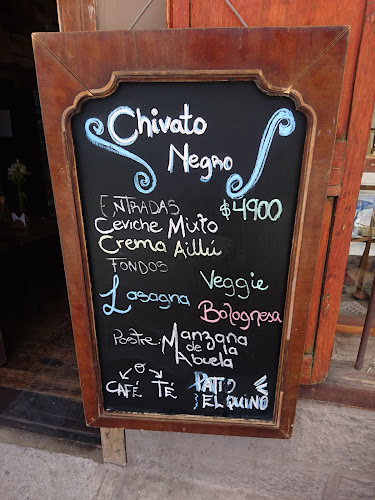 Chivato
Negro
ENTRADAS
$4900
Ceviche Mixto
Crema Aillú
FONDOS
Lasagna
Veggie
Bolognesa
Postre: Manzana
de la
Abuela
o
CAFÉ TÉ
PATIO
EL QUINO